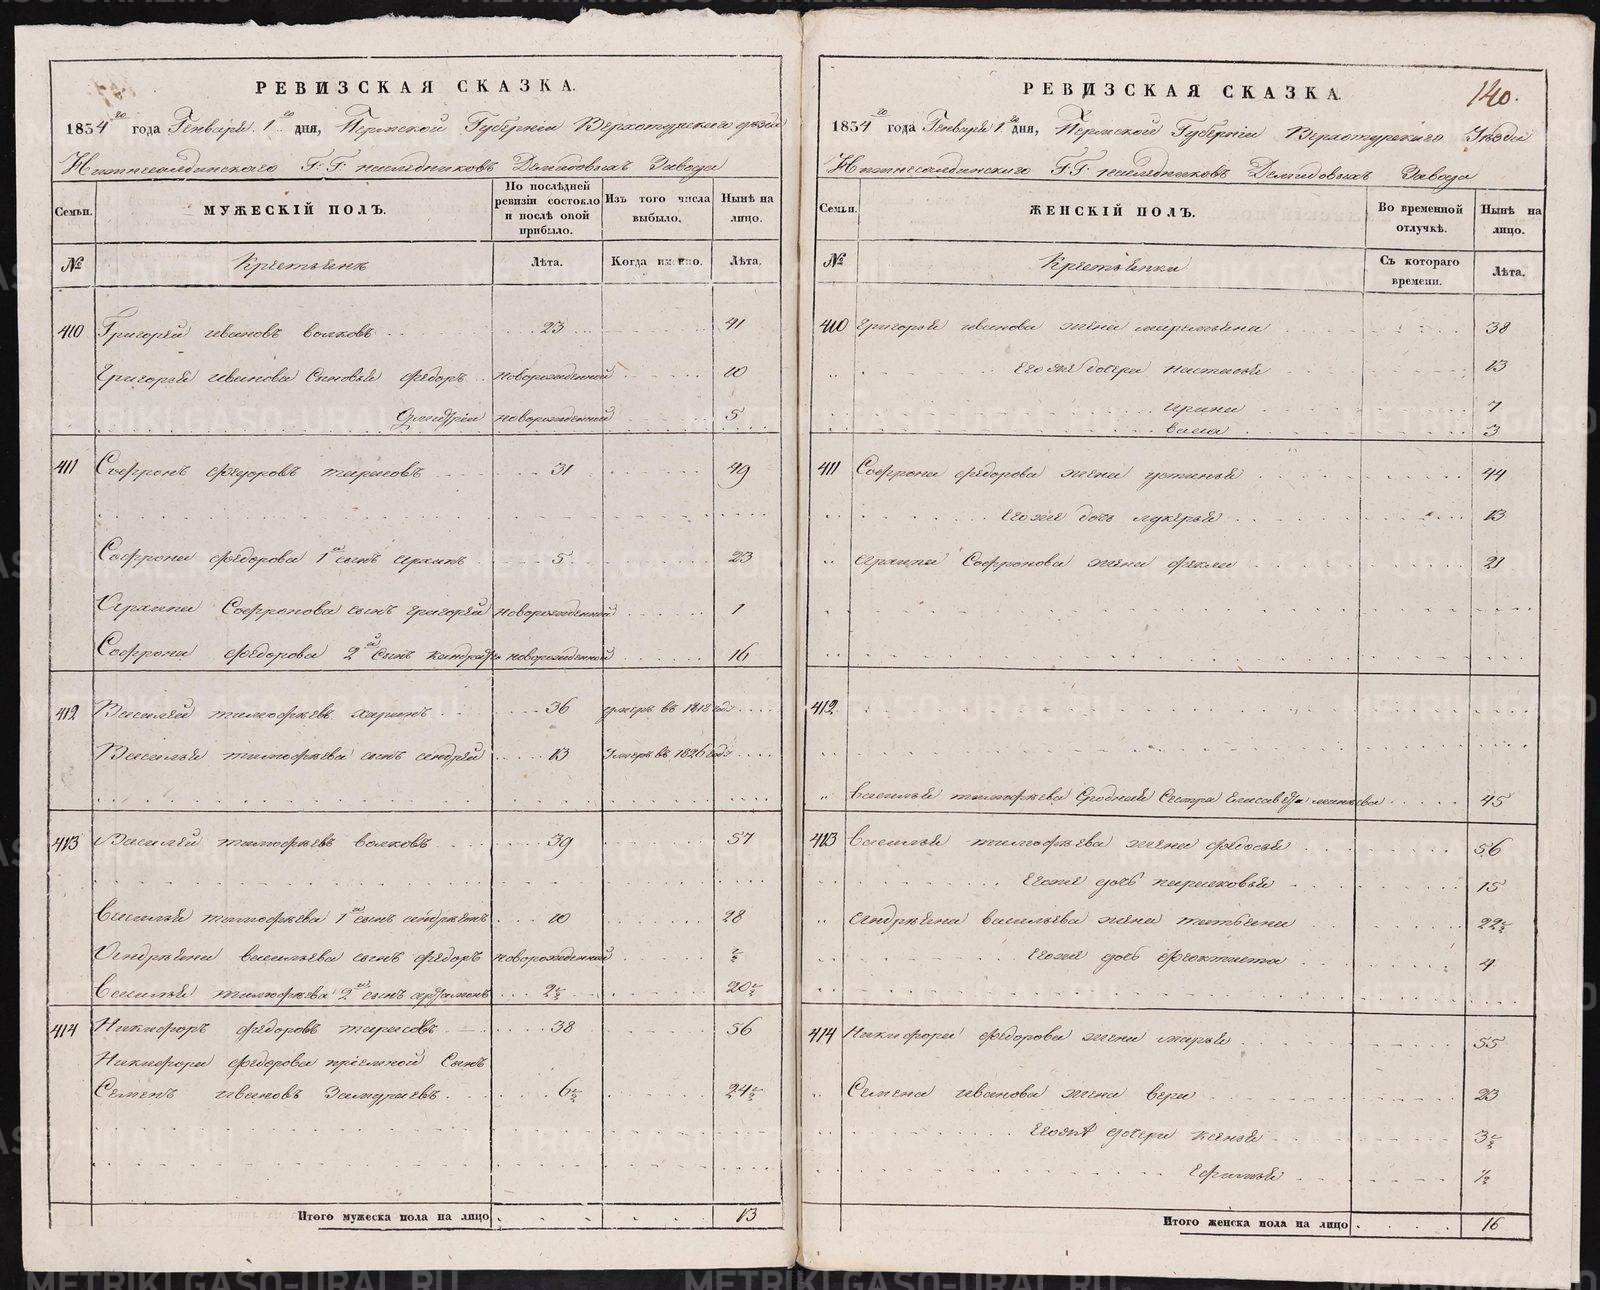 РЕВИЗСКАЯ СКАЗКА.
1834го года Генваря 1го дня, Пермской Губернiи Верхотурскаго уѣзда
Нижнесалдинскаго Г.Г. наслѣдниковъ Демидовыхъ Завода
Семьи. МУЖЕСКIЙ ПОЛЪ. По послѣдней ревизiи состояло и послѣ оной прибыло. Изъ того числа выбыло. Нынѣ на лицо.
№ Крестьянъ Лѣта. Когда имянно. Лѣта.
410 Григорей ивановъ волковъ 23 41
Григорья иванова Сыновья федоръ новорожденной 10
Дмитрiй новорожденной 5
411 Софронъ федоровъ тарасовъ 31 49
Софрона федорова 1й сынъ архипъ 5 23
Архипа Софронова сынъ григорей новорожденной 1
Софрона федорова 2й сынъ кондратей новорожденной 16
412 Василей тимофѣевъ харинъ 36 умеръ въ 1818 годѣ
Василья тимофѣева сынъ андрей 13 Умеръ въ 1826 годѣ
413 Василей тимофѣевъ волковъ 39 57
Василья тимофѣева 1й сынъ андрѣянъ 10 28
Андрѣяна васильева сынъ федоръ новорожденной ½
Василья тимофѣева 2й сынъ артамонъ 2½ 20½
414 Никифоръ федоровъ тарасовъ 38 56
Никифора федорова прiемной Сынъ
Семенъ ивановъ 6½ 24½
Итого мужеска пола на лицо 13
140.
РЕВИЗСКАЯ СКАЗКА.
1834го года Генваря 1го дня, Пермской Губернiи Верхотурскаго Уѣзда
Нижнесалдинскаго Г.Г. наслѣдниковъ Демидовыхъ Завода
Семьи. ЖЕНСКIЙ ПОЛЪ. Во временной отлучкѣ. Нынѣ на лицо.
№ Крестьянки Съ котораго времени. Лѣта.
410 Григорья иванова жена маремьяна 38
Его же дочери настасья 13
ирина 7
васса 3
411 Софрона федорова жена устинья 44
Его же дочь лукерья 13
архипа Софронова жена фекла 21
412
Василья тимофѣева Сродная Сестра Елисавета 45
413 Василья тимофѣева жена федосья 56
Его же дочь парасковья 15
андрѣяна васильева жена татьяна 22½
Его же дочь феоктиста 4
414 Никифора федорова жена марья 55
Семена иванова жена вера 23
Его же дочери 3½
Ефимья ½
Итого женска пола на лицо 16